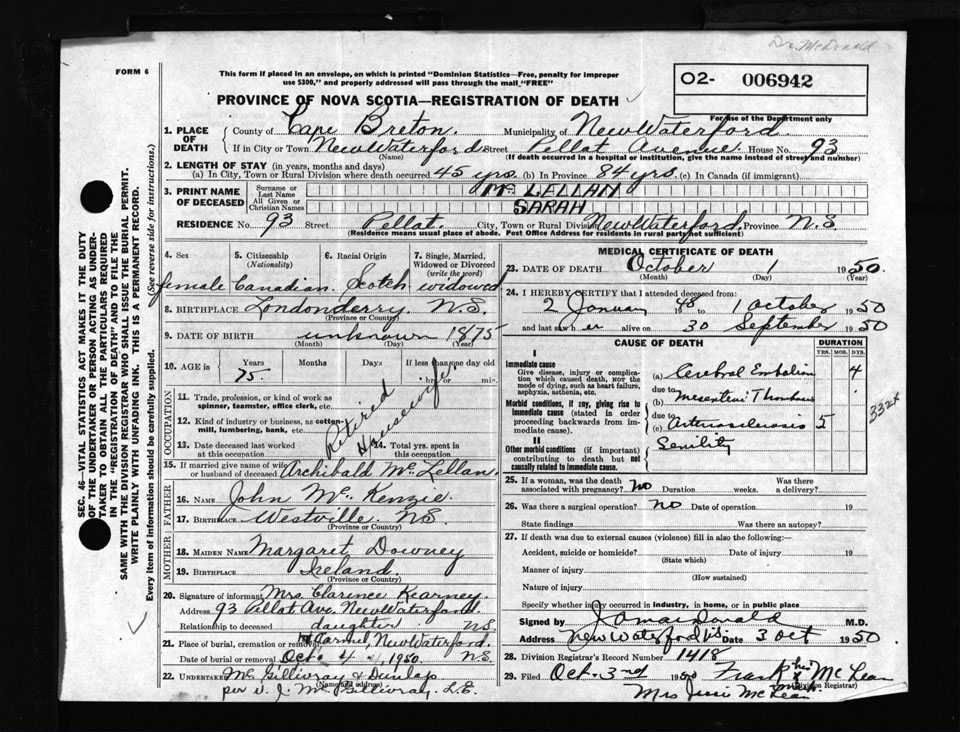 Dr. McDonald
FORM 6
This form if placed in an envelope, on which is printed "Dominion Statistics—Free, penalty for improper
use $300," and properly addressed will pass through the mail "FREE"
O2- 006942
PROVINCE OF NOVA SCOTIA—REGISTRATION OF DEATH
For use of the Department only
1. PLACE OF DEATH
County of Cape Breton. Municipality of New Waterford.
If in City or Town New Waterford Street Pellat Avenue. House No. 93
(Name) (If death occurred in a hospital or institution, give the name instead of street and number)
2. LENGTH OF STAY (in years, months and days)
(a) In City, Town or Rural Division where death occurred 45 yrs. (b) In Province 84 yrs. (c) In Canada (if immigrant)
3. PRINT NAME OF DECEASED
Surname or Last Name Mc LELLAN
All Given or Christian Names SARAH
RESIDENCE No. 93 Street Pellat. City, Town or Rural Division New Waterford, Province N.S.
(Residence means usual place of abode. Post Office Address for residents in rural parts not sufficient)
SEC. 46—VITAL STATISTICS ACT MAKES IT THE DUTY
OF THE UNDERTAKER OR PERSON ACTING AS UNDER-
TAKER TO OBTAIN ALL THE PARTICULARS REQUIRED
IN THE "REGISTRATION OF DEATH" AND TO FILE THE
SAME WITH THE DIVISION REGISTRAR WHO SHALL ISSUE THE BURIAL PERMIT.
WRITE PLAINLY WITH UNFADING INK. THIS IS A PERMANENT RECORD.
Every item of information should be carefully supplied. (See reverse side for instructions.)
4. Sex 5. Citizenship (Nationality) 6. Racial Origin 7. Single, Married, Widowed or Divorced (write the word)
female Canadian. Scotch widowed
8. BIRTHPLACE Londonderry. N.S.
(Province or Country)
9. DATE OF BIRTH unknown 1875
(Month) (Day) (Year)
10. AGE in Years Months Days If less than one day old
75. hr. or min.
OCCUPATION
11. Trade, profession or kind of work as
spinner, teamster, office clerk, etc.
12. Kind of industry or business, as cotton-
mill, lumbering, bank, etc.
Retired Housewife.
13. Date deceased last worked at this occupation
14. Total yrs. spent in this occupation
15. If married give name of wife or husband of deceased Archibald Mc Lellan.
FATHER
16. NAME John Mc Kenzie.
17. BIRTHPLACE Westville N.S.
(Province or Country)
MOTHER
18. MAIDEN NAME Margaret Downey
19. BIRTHPLACE Ireland.
(Province or Country)
20. Signature of informant Mrs. Clarence Kearney
Address 93 Pellat Ave. New Waterford.
Relationship to deceased daughter N.S.
21. Place of burial, cremation or removal Mt Carmel, New Waterford.
Date of burial or removal Oct. 4, 1950. N.S.
22. UNDERTAKER Mc Gillivray & Dunlap
(Name and address)
per J. Mc Gillivray. L.E.
MEDICAL CERTIFICATE OF DEATH
23. DATE OF DEATH October 1 1950.
(Month) (Day) (Year)
24. I HEREBY CERTIFY that I attended deceased from:
2 January 1948 to 1 October 1950
and last saw h er alive on 30 September 1950
CAUSE OF DEATH DURATION
YRS. MOS. DYS.
I
Immediate cause
Give disease, injury or complica-
tion which caused death, NOT the
mode of dying, such as heart failure,
asphyxia, asthenia, etc.
(a) Cerebral Embolism 4
due to
Morbid conditions, if any, giving rise to
immediate cause (stated in order
proceeding backwards from im-
mediate cause).
(b) Mesenteric Thrombosis
due to
(c) Arteriosclerosis 5
332x
II
Other morbid conditions (if important)
contributing to death but not
causally related to immediate cause.
Senility
25. If a woman, was the death associated with pregnancy? No Duration weeks. Was there a delivery?
26. Was there a surgical operation? No Date of operation 19
State findings Was there an autopsy?
27. If death was due to external causes (violence) fill in also the following:—
Accident, suicide or homicide? Date of injury 19
(State which)
Manner of injury
(How sustained)
Nature of injury
Specify whether injury occurred in industry, in home, or in public place
Signed by MacDonald M.D.
Address New Waterford N.S. Date 3 Oct 1950
28. Division Registrar's Record Number 1418
29. Filed Oct. 3rd 1950 Frank his x mark McLean
(Division Registrar)
Mrs Jessie McLean